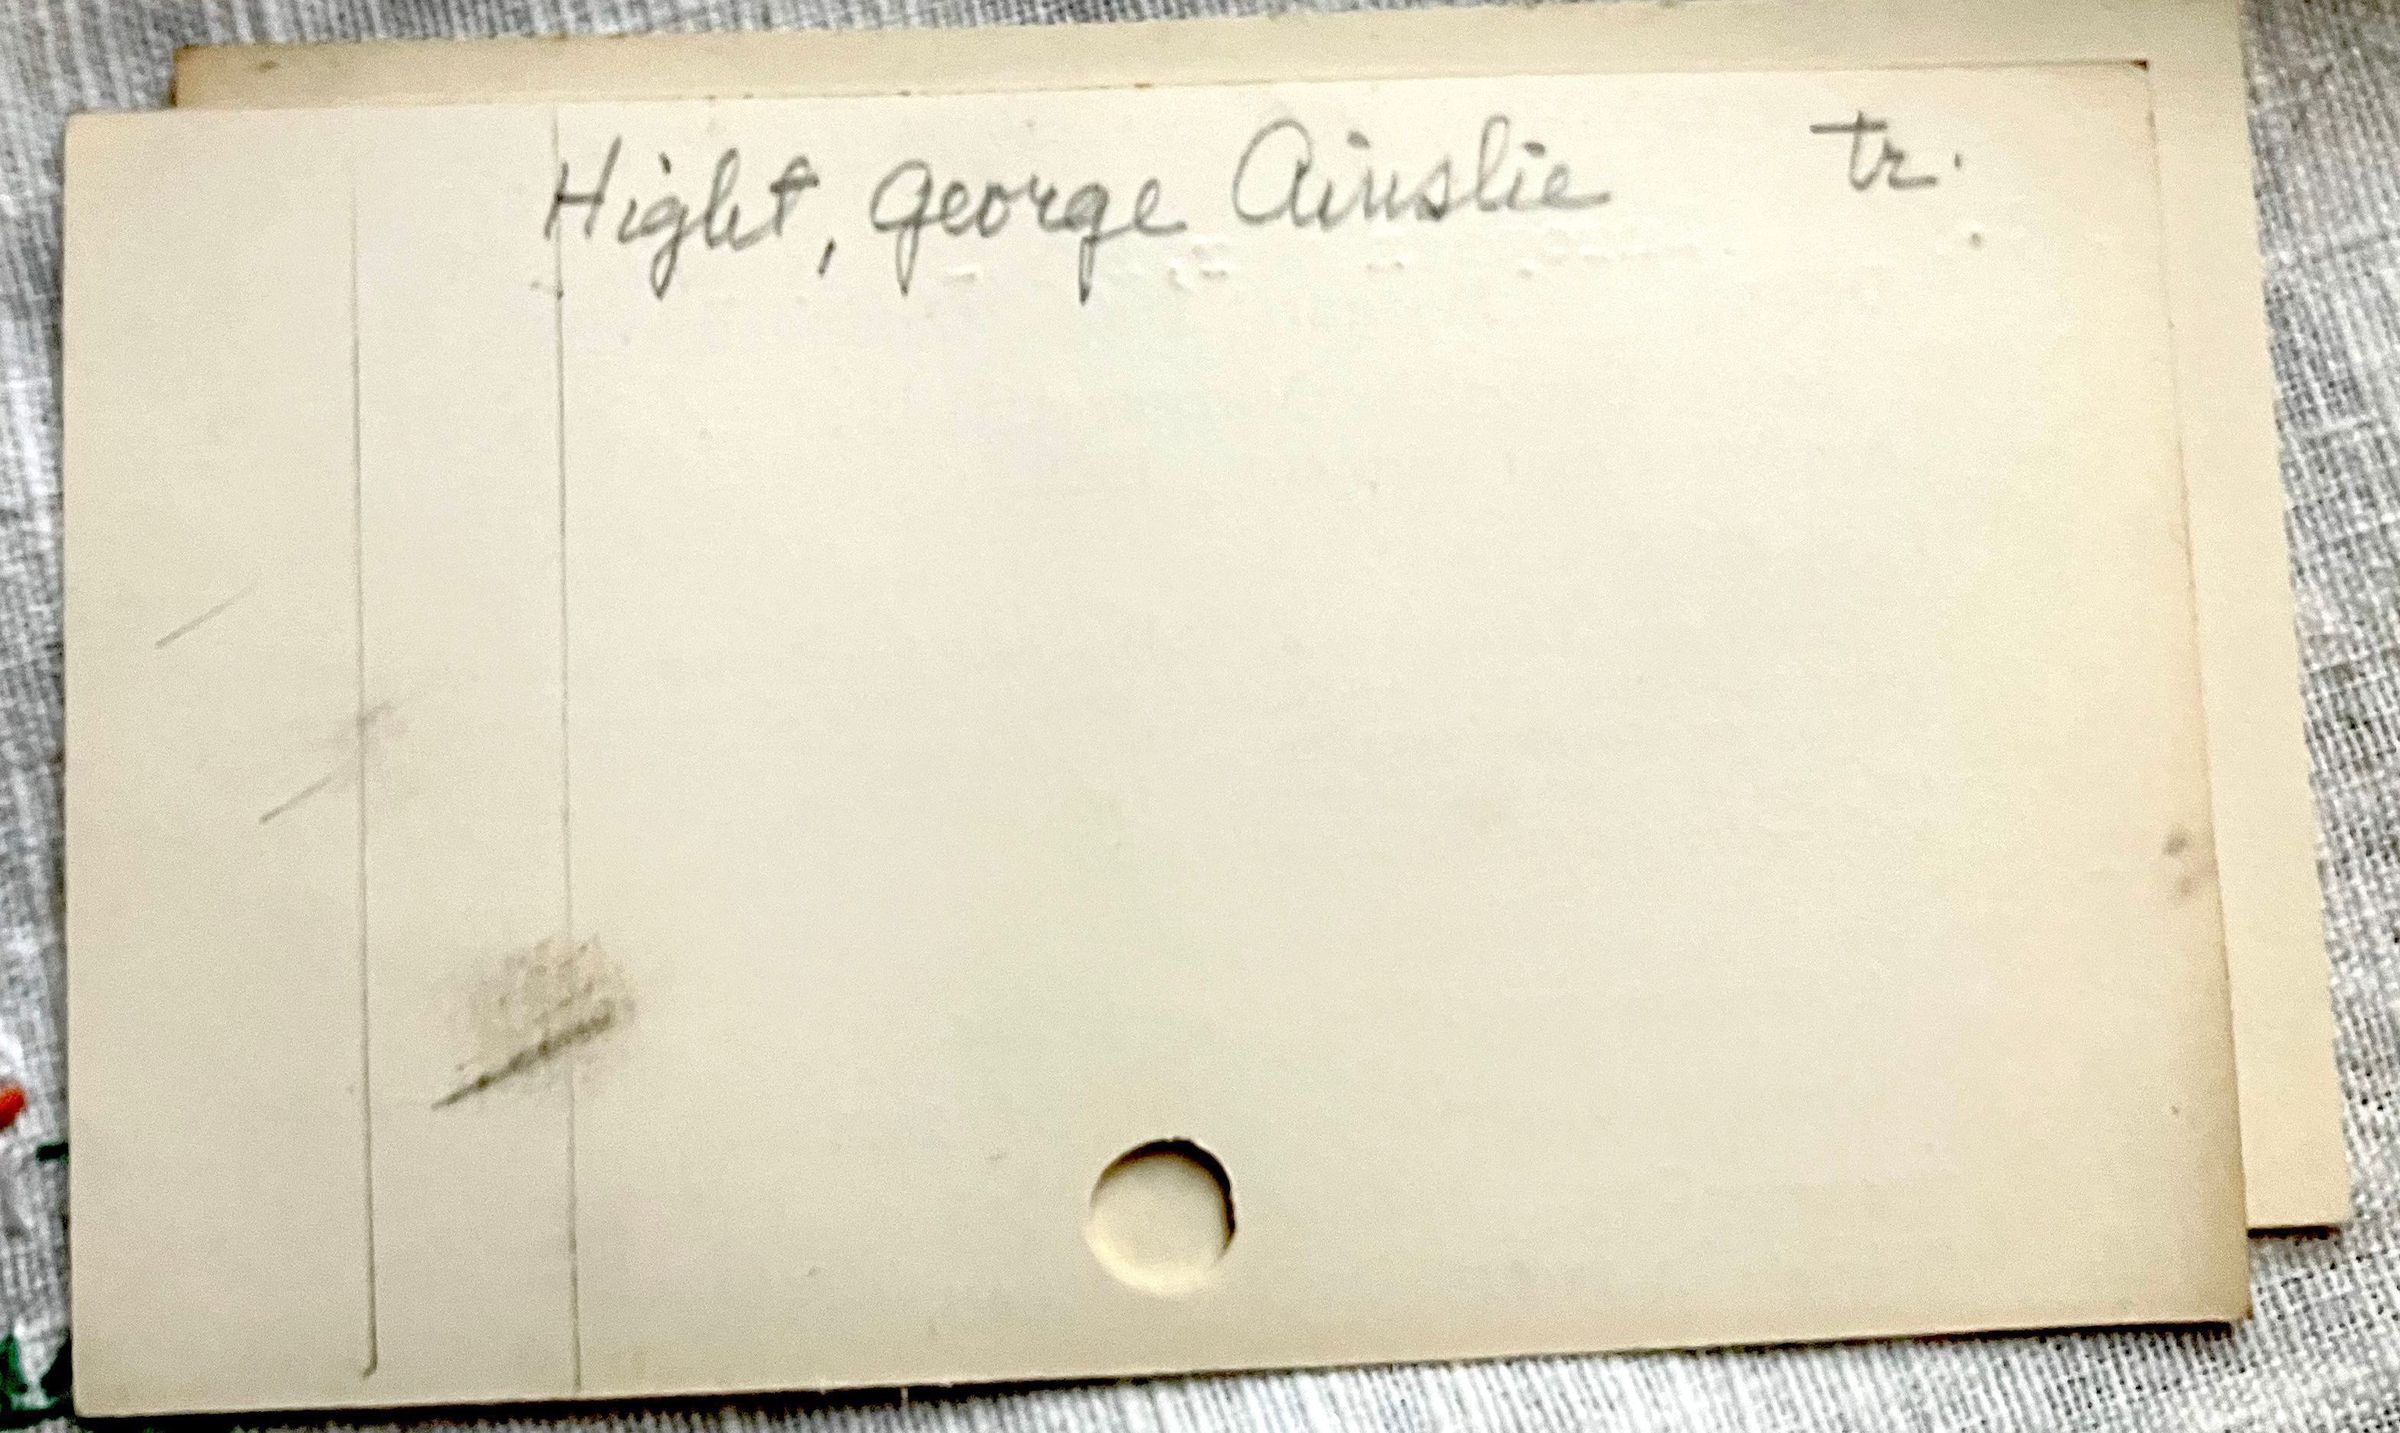 Hight, George Ainslie tr.